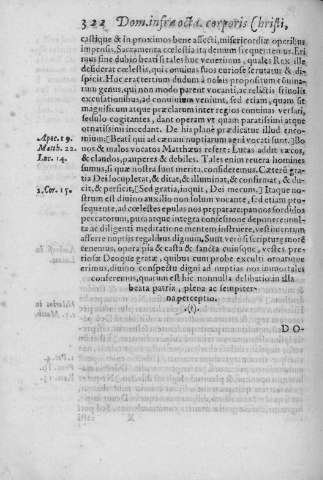 322 Dom. infra octa. corporis Christi,
castique & in proximos bene affecti, misericordiæ operibus
impensis, Sacramenta cœlestia ita demum frequentent us. Eri
mus sine dubio beati si tales huc venerimus, quales Rex ille
desiderat cœlestis, qui omnia suos furiose scrutatur & dis-
picit. Hoc erat tertium dudum à nobis propositum e
genus, qui non modo parent vocanti, ac relictis frivolis
excusationibus, ad convivium veniunt, sed etiam, quam sit
magnificum atque præclarum inter regios convivas versari,
sedulo cogitantes, dant operam vt quam paratissimi atque
ornatissimi incedant. De his planè prædicatur illud enco-
Apoc. 19. mium: [Beati qui ad cœnam nuptiarum agni vocati sunt.] Bo-
Matth. 22. nos & malos vocatos Matthæus refert: Lucas addit cæcos,
Luc. 14. & claudos, pauperes & debiles. Tales enim revera homines
sumus, si quæ nostra sunt merita, consideremus. Cæterũ gra-
tia Dei locupletat, & ditat, & illuminat, & confirmat, & du-
1. Cor. 15. cit, & perficit. [Sed gratia, inquit, Dei mecum.] Itaque no-
strum est divino auxilio non solum vocante, sed etiam pro-
sequente, ad cœlestes epulas nos præparare: pannos sordidos
peccatorum, pura atque integra confessione deponere: mul-
ta ac diligenti meditatione mentem instruere, vestimentum
afferre nuptiis regalibus dignum. Sunt verò si scripturę more
tenemus, opera pia & casta & sancta cuiusque, vestes pre-
tiosæ Deoque gratæ, quibus cum probe exculti ornatique
erimus, divino conspectu digni ad nuptias nos immortales
conferemus, quarum est hic nonnulla delibatio: in illa
beata patria, plena ac sempiter-
na perceptio.
.(†).
DO-